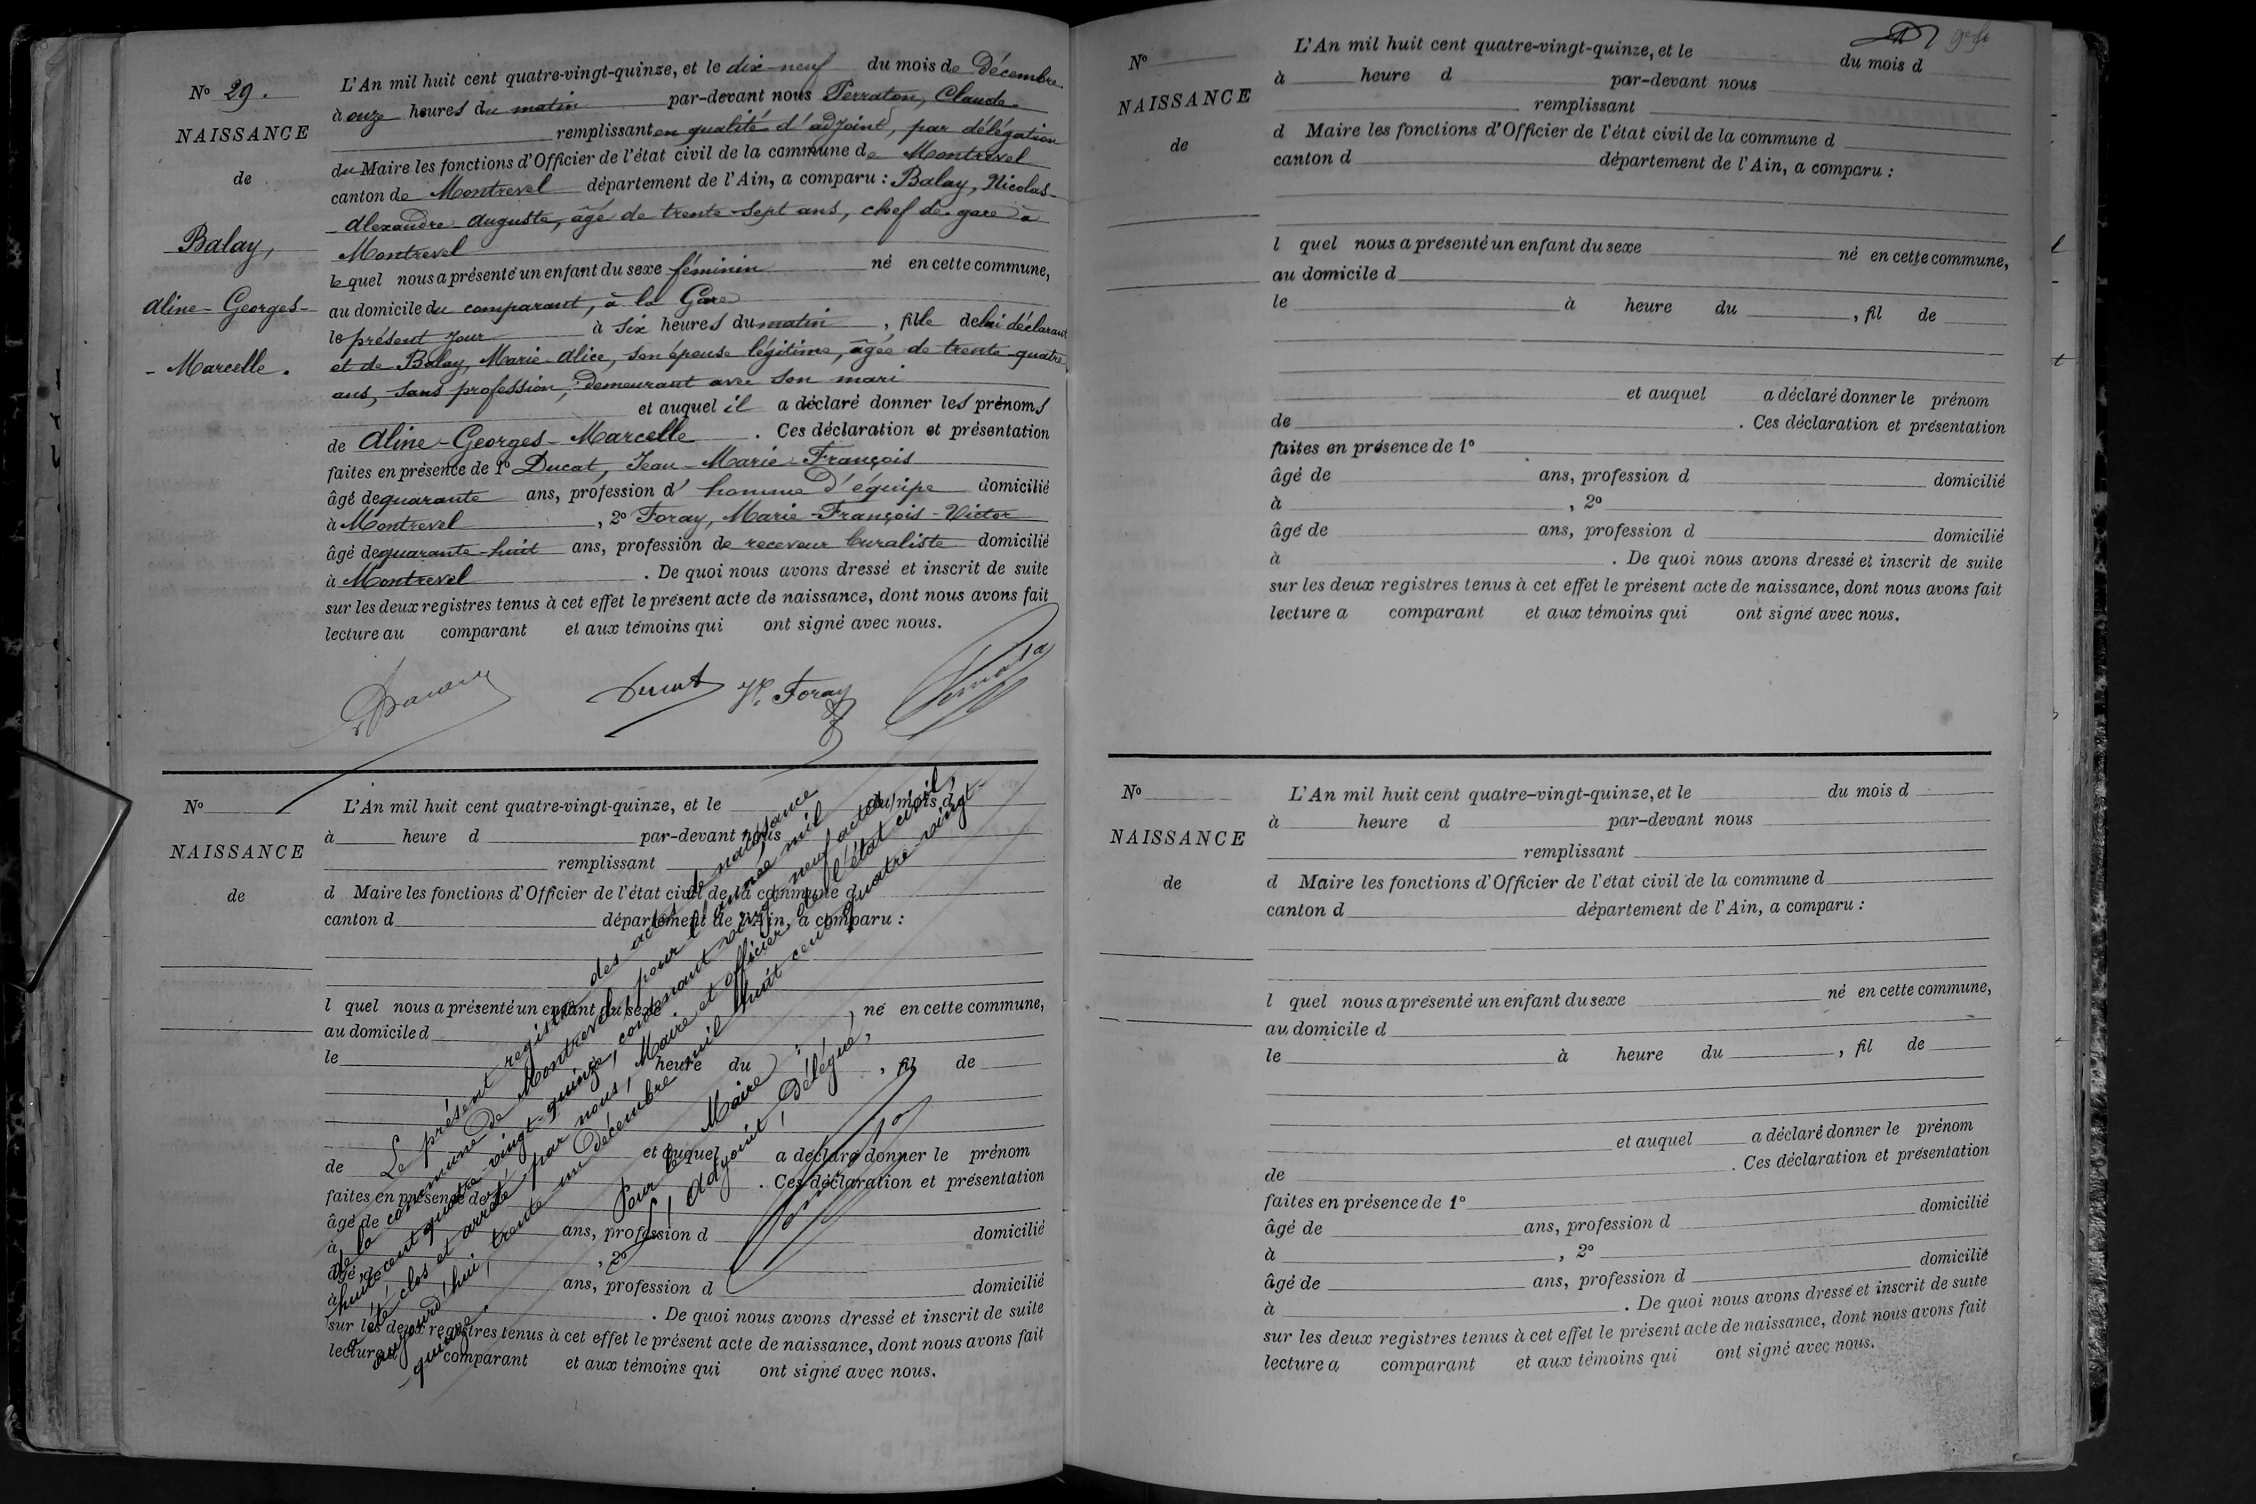 Nº 29.
NAISSANCE
de
Balay,
Aline-Georges-
-Marcelle.
L'An mil huit cent quatre-vingt-quinze, et le dix-neuf du mois de Décembre
à onze heures du matin par-devant nous Perraton, Claude
remplissant en qualité d'adjoint, par délégation
du Maire les fonctions d'Officier de l'état civil de la commune de Montrevel
canton de Montrevel département de l'Ain, a comparu : Balay, Nicolas-
Alexandre Auguste, âgé de trente-sept ans, chef de gare à
Montrevel
lequel nous a présenté un enfant du sexe féminin né en cette commune,
au domicile du comparant, à la Gare
le présent jour à six heures du matin, fille de lui déclarant
et de Balay, Marie-Alice, son épouse légitime, âgée de trente-quatre
ans, sans profession, demeurant avec son mari
et auquel il a déclaré donner les prénoms
de Aline-Georges-Marcelle. Ces déclaration et présentation
faites en présence de 1º Ducat, Jean-Marie-François
âgé de quarante ans, profession d'homme d'équipe domicilié
à Montrevel, 2º Foray, Marie-François-Victor
âgé de quarante-huit ans, profession de receveur buraliste domicilié
à Montrevel. De quoi nous avons dressé et inscrit de suite
sur les deux registres tenus à cet effet le présent acte de naissance, dont nous avons fait
lecture au comparant et aux témoins qui ont signé avec nous.
Ducat Foray
Nº
NAISSANCE
de
L'An mil huit cent quatre-vingt-quinze, et le du mois d
à heure d par-devant nous
remplissant
d Maire les fonctions d'Officier de l'état civil de la commune d
canton d département de l'Ain, a comparu :
l quel nous a présenté un enfant du sexe né en cette commune,
au domicile d
le à heure du , fil de
et auquel a déclaré donner le prénom
de . Ces déclaration et présentation
faites en présence de 1º
âgé de ans, profession d domicilié
à , 2º
âgé de ans, profession d domicilié
à . De quoi nous avons dressé et inscrit de suite
sur les deux registres tenus à cet effet le présent acte de naissance, dont nous avons fait
lecture a comparant et aux témoins qui ont signé avec nous.
Le présent registre des actes de naissance
de la commune de Montrevel, pour l'année mil
huit cent quatre-vingt-quinze, contenant vingt-neuf actes,
a été clos et arrêté par nous, Maire et officier de l'état civil,
aujourd'hui, trente un décembre mil huit cent quatre vingt-
quinze.
Pour le Maire :
L'Adjoint Délégué,
Nº
NAISSANCE
de
L'An mil huit cent quatre-vingt-quinze, et le du mois d
à heure d par-devant nous
remplissant
d Maire les fonctions d'Officier de l'état civil de la commune d
canton d département de l'Ain, a comparu :
l quel nous a présenté un enfant du sexe né en cette commune,
au domicile d
le à heure du , fil de
et auquel a déclaré donner le prénom
de . Ces déclaration et présentation
faites en présence de 1º
âgé de ans, profession d domicilié
à , 2º
âgé de ans, profession d domicilié
à . De quoi nous avons dressé et inscrit de suite
sur les deux registres tenus à cet effet le présent acte de naissance, dont nous avons fait
lecture a comparant et aux témoins qui ont signé avec nous.
Nº
NAISSANCE
de
L'An mil huit cent quatre-vingt-quinze, et le du mois d
à heure d par-devant nous
remplissant
d Maire les fonctions d'Officier de l'état civil de la commune d
canton d département de l'Ain, a comparu :
l quel nous a présenté un enfant du sexe né en cette commune,
au domicile d
le à heure du , fil de
et auquel a déclaré donner le prénom
de . Ces déclaration et présentation
faites en présence de 1º
âgé de ans, profession d domicilié
à , 2º
âgé de ans, profession d domicilié
à . De quoi nous avons dressé et inscrit de suite
sur les deux registres tenus à cet effet le présent acte de naissance, dont nous avons fait
lecture a comparant et aux témoins qui ont signé avec nous.